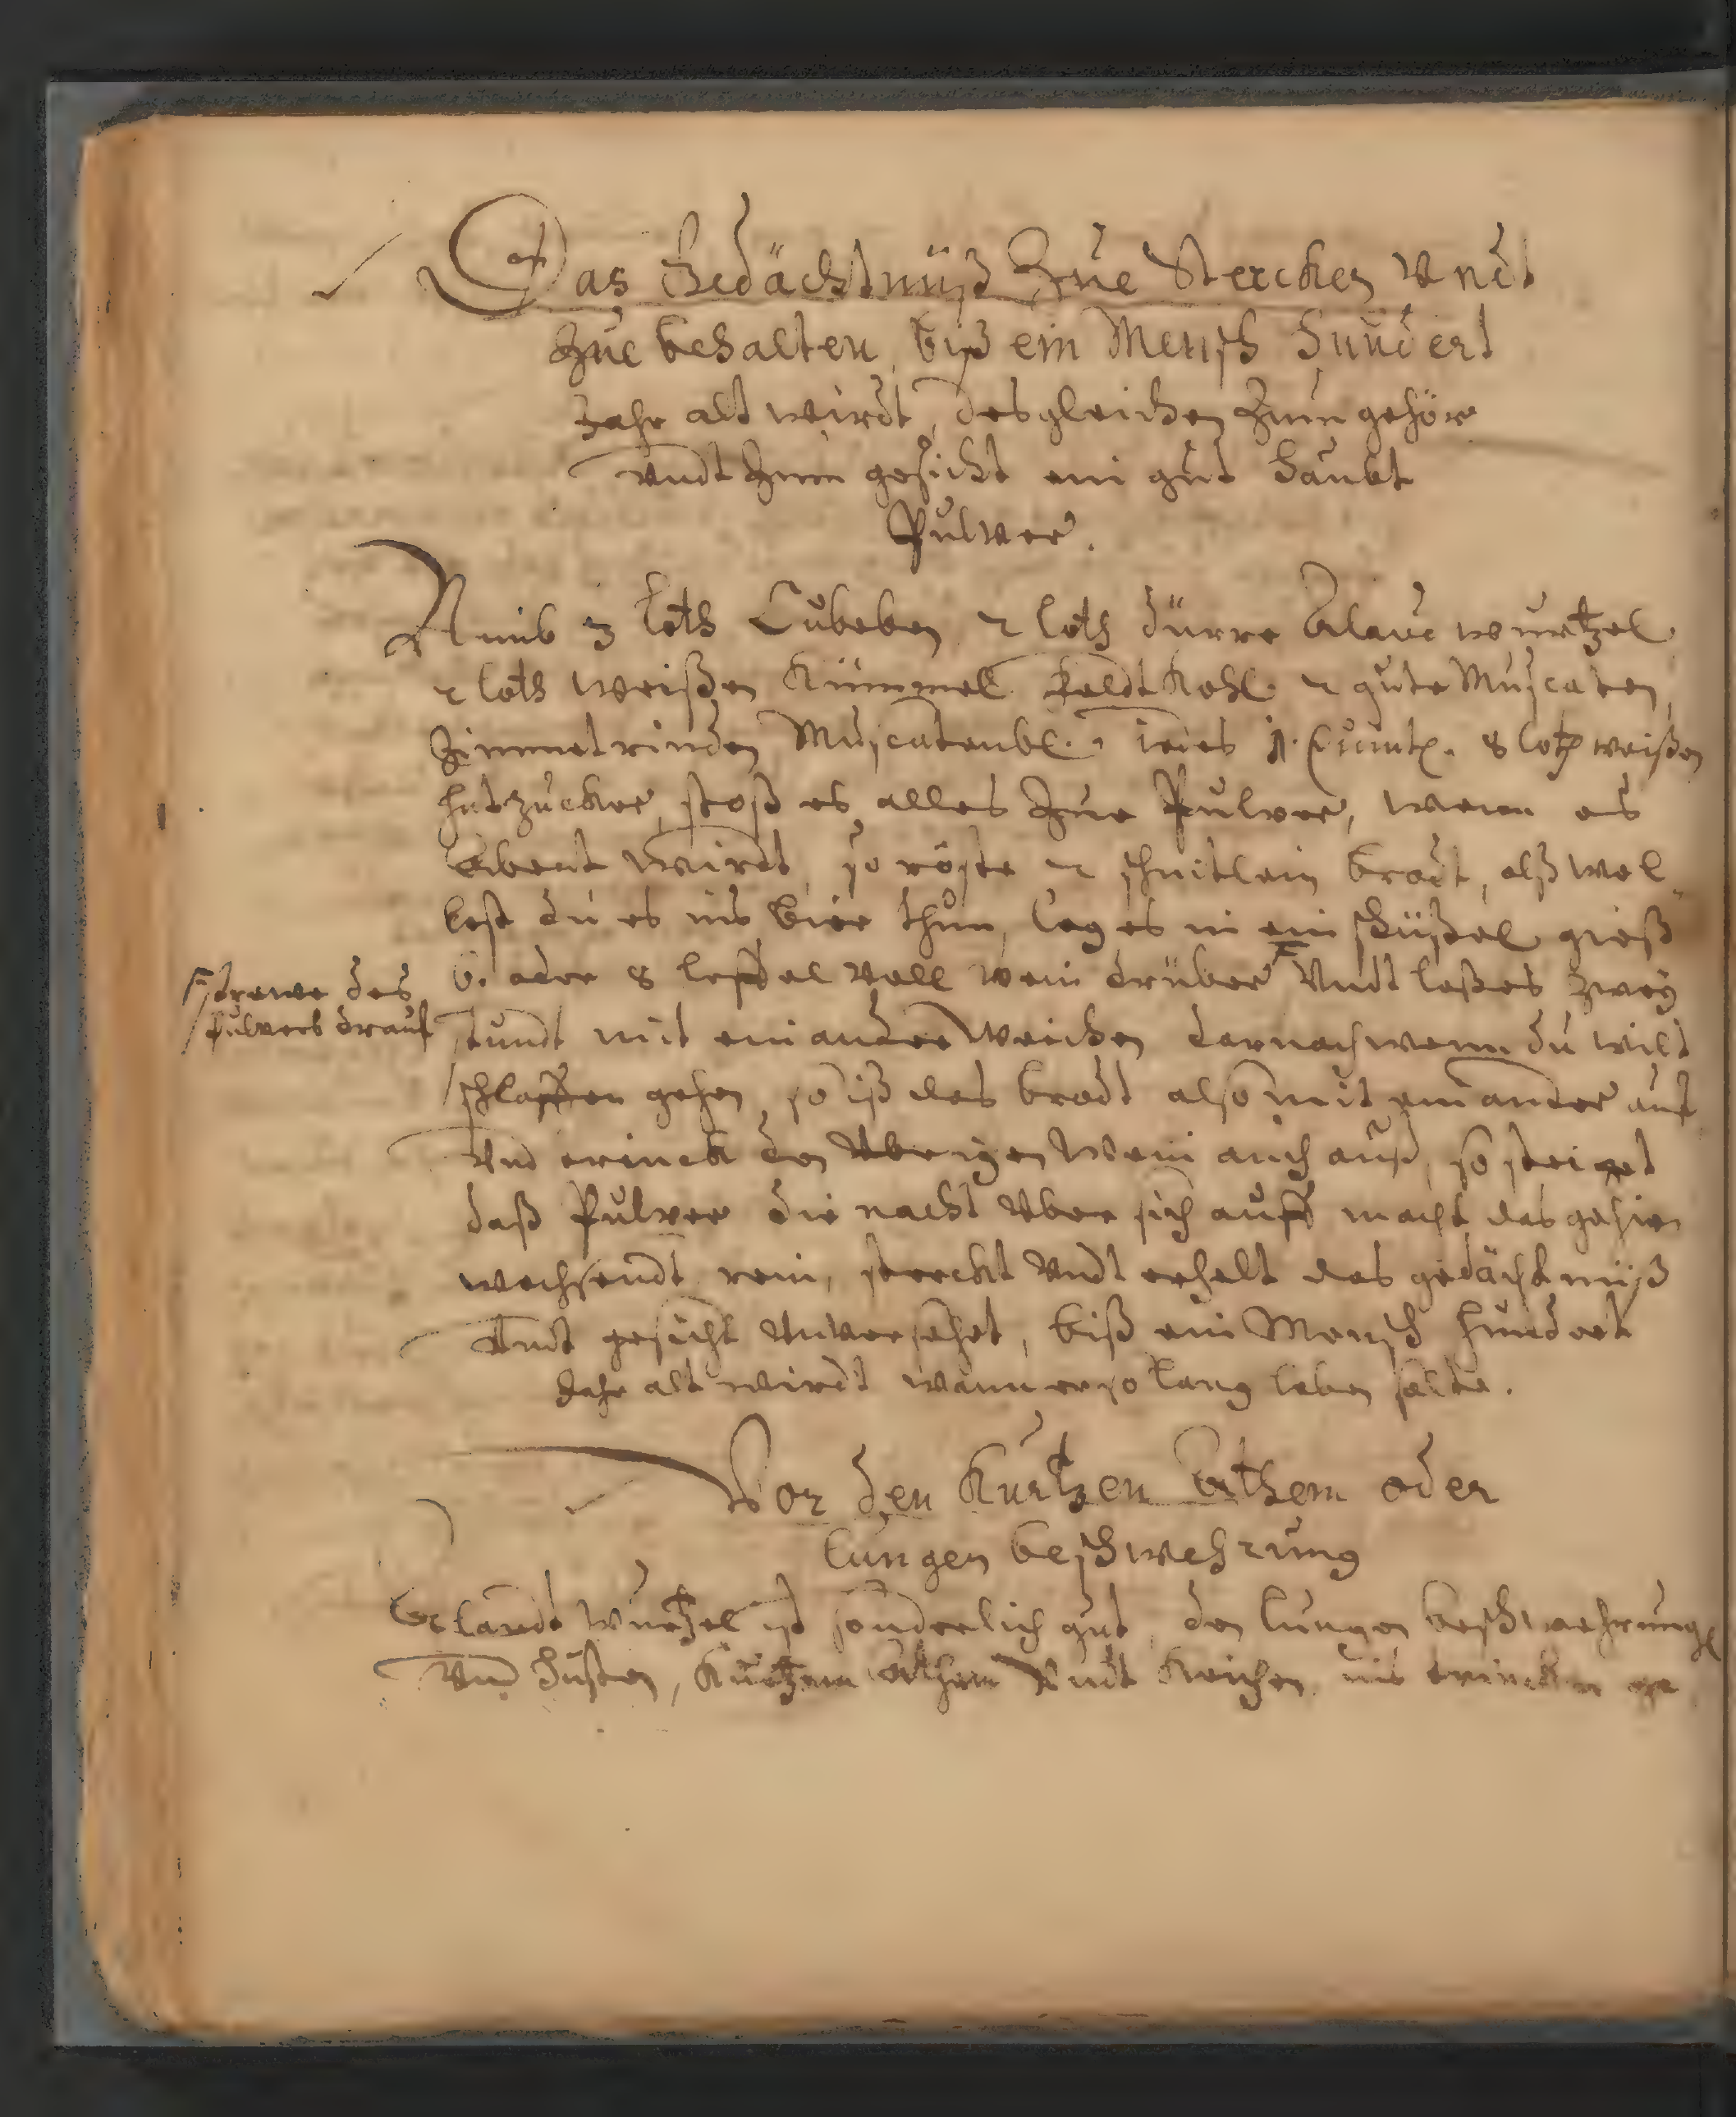 Das Gedächtnüß Zue Stercken Vndt
Zue behalten, biß ein Mensch hundert
Jahr alt wirdt, desgleichen Zum gehör
Vndt Zum gesicht ein gut haubt
Pulver.
Nimb 3 loth Cubeben 2 loth dürre Alant wurtzel
2 loth weißen Kümmel 2 gute Muscaten,
Zimmetrinden Muscatenbl. iedes 1. quintl. 8 loth weißen
hutzucker, stoß es alles Zue Pulver, wenn es
Abent wirdt, so röste 2 schnitlein brodt, alß wol„
lest du es ins bier thun, leg es in ein schüßel gieß
6. oder 8 leffel Voll wein drüber F Vndt laß es zwey
F strewe des
Pulvers drauf
stundt mit einander weichen darnach wenn du wilt
schlaffen gehen, so iß das brodt also mit einander auf
Vnd trinck den Vbrigen wein auch auß, so steiget
daß Pulver die nacht Vber sich auff macht das gehirn
wachsendt rein, sterckt Vndt erhelt das gedächtnüß
Vndt gesicht Vnversehrt, biß ein Mensch hundert
Jahr alt wirdt wann er so lang leben solte.
Vor den Kurtzen Athem oder
lungen beschwehrung
Alandt wurtzel ist sonderlich gut, den lungen beschwehrung
Vnd husten, Kurtzem Athem Vndt Keichen, ins trincken ge